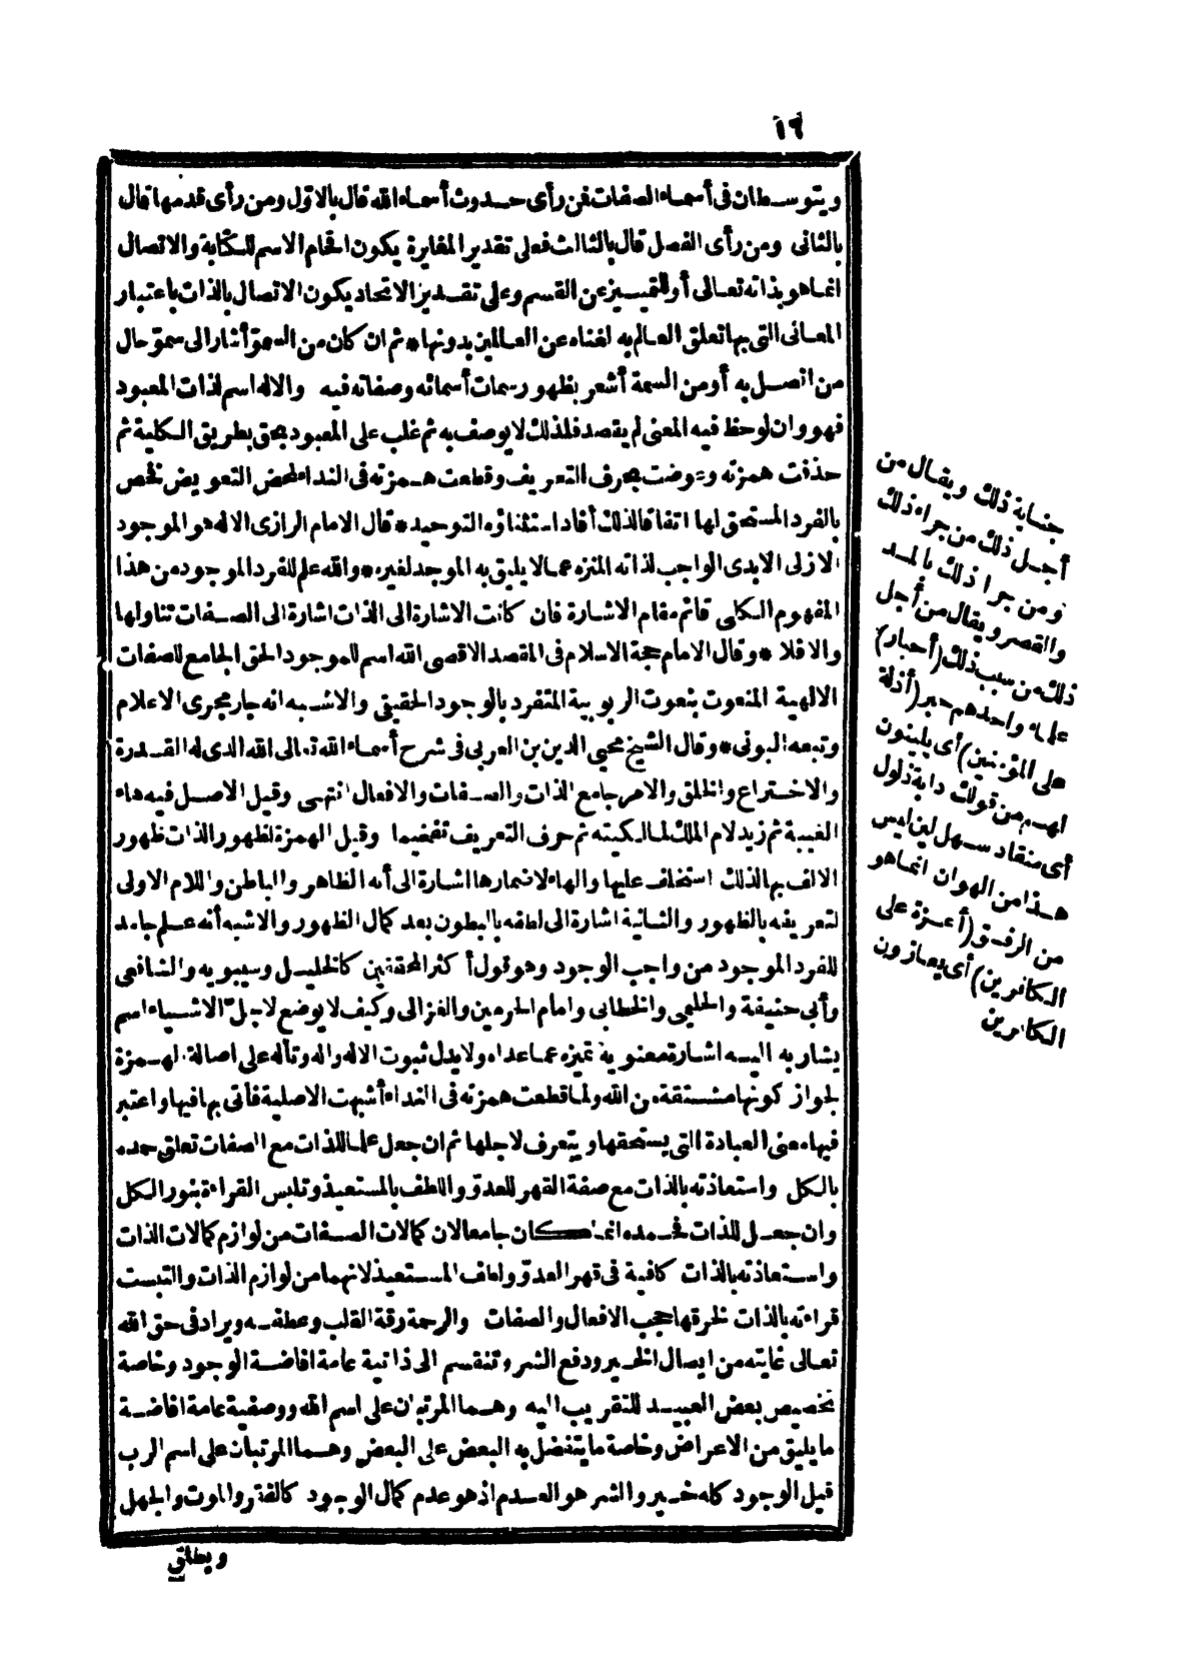 ١٦
ويتوسطان فى أسماء الصفات فمن رأى حدوث أسماء الله قال بالاول ومن رأى قدمها قال
بالثانى ومن رأى الفصل قال بالثالث فعلى تقدير المغايرة يكون اقحام الاسم للكتابة والاتصال
انما هو بذاته تعالى أو للتمييز عن القسم وعلى تقدير الاتحاد يكون الاتصال بالذات باعتبار
المعانى التى بها تعلق العالم به لغناه عن العالمين بدونها * ثم ان كان من السمو أشار الى سمو حال
من اتصل به أو من السمة أشعر بظهور سمات أسمائه وصفاته فيه والاله اسم لذات المعبود
فهو وان لوحظ فيه المعنى لم يقصد فلذلك لا يوصف به ثم غلب على المعبود بحق بطريق الكلية ثم
حذفت همزته وعوضت بحرف التعريف وقطعت همزته فى النداء لمحض التعويض فخص
بالفرد المستحق لها اتفاقا لذلك أفاد استثناؤه التوحيد * قال الامام الرازى الاله هو الموجود
الازلى الابدى الواجب لذاته المنزه عما لا يليق به الموجد لغيره * والله علم للفرد الموجود من هذا
المفهوم الكلى قائم مقام الاشارة فان كانت الاشارة الى الذات اشارة الى الصفات تناولها
والا فلا * وقال الامام حجة الاسلام فى المقصد الاقصى الله اسم للموجود الحق الجامع للصفات
الالهية المنعوت بنعوت الربوبية المتفرد بالوجود الحقيقى والاشبه انه جار مجرى الاعلام
وتبعه البونى * وقال الشيخ محيى الدين بن العربى فى شرح أسماء الله تعالى الله الذى له القدرة
والاختراع والخلق والامر جامع الذات والصفات والافعال انتهى وقيل الاصل فيه هاء
الغيبة ثم زيد لام الملك لمالكيته ثم حرف التعريف تفخيما وقيل الهمزة لظهور الذات ظهور
الالف بها لذلك استخلف عليها والهاء لاضمارها اشارة الى أنه الظاهر والباطن واللام الاولى
لتعريفه بالظهور والثانية اشارة الى لطفه بالبطون بعد كمال الظهور والاشبه أنه علم جامد
للفرد الموجود من واجب الوجود وهو قول أكثر المحققين كالخليل وسيبويه والشافعى
وأبى حنيفة والحليمى والخطابى وامام الحرمين والغزالى وكيف لا يوضع لاجل الاشياء اسم
يشار به اليه اشارة معنوية تميزه عما عداه ولا يدل ثبوت الاله واله وتأله على اصالة الهمزة
لجواز كونها مشتقة من الله ولما قطعت همزته فى النداء أشبهت الاصلية فأتى بها فيها واعتبر
فيها معنى العبادة التى يستحقها ويتعرف لاجلها ثم ان جعل علما للذات مع الصفات تعلق حمده
بالكل واستعاذته بالذات مع صفة القهر للعدو واللطف بالمستعيذ وتلبس القراءة بنور الكل
وان جعل للذات فحمده انما كان جامعا لان كمالات الصفات من لوازم كمالات الذات
واستعاذته بالذات كافية فى قهر العدو ولطف المستعيذ لانهما من لوازم الذات والتبست
قراءته بالذات لخرقها حجب الافعال والصفات والرحمة رقة القلب وعطفه ويراد فى حق الله
تعالى غايته من ايصال الخير ودفع الشر وتنقسم الى ذاتية عامة افاضة الوجود وخاصة
تخصيص بعض العبيد للتقريب اليه وهما المرتبان على اسم الله ووصفية عامة افاضة
ما يليق من الاعراض وخاصة ما يتفضل به البعض على البعض وهما المرتبان على اسم الرب
قيل الوجود كله خير والشر هو العدم اذ هو عدم كمال الوجود كالفقر والموت والجهل
ويطلق
جناية ذلك ويقال من
أجل ذلك من جراء ذلك
ومن جرا ذلك بالمد
والقصر ويقال من أجل
ذلك من سبب ذلك (أحبار)
علماء واحدهم حبر (أذلة
على المؤمنين) أى يلينون
لهم من قولك دابة ذلول
أى منقاد سهل لين ليس
هذا من الهوان انما هو
من الرفق (أعزة على
الكافرين) أى يعازون
الكافرين